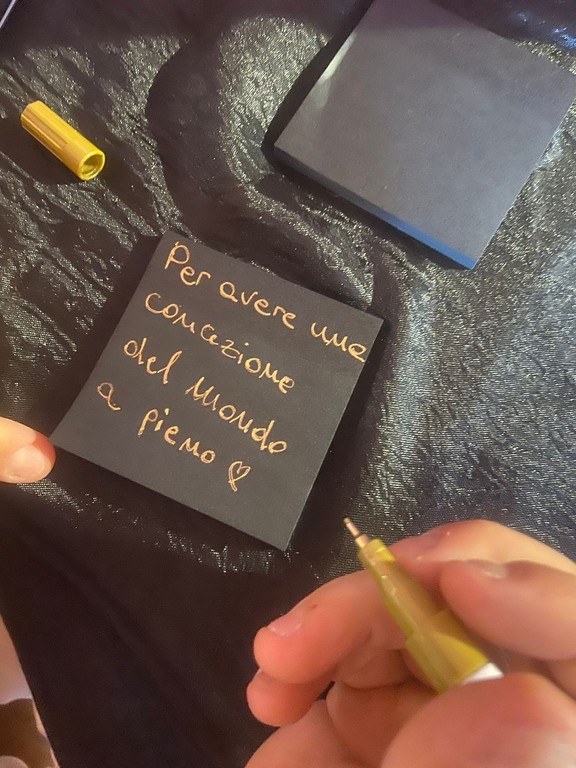 Per avere una
concezione
del Mondo
a pieno ♡